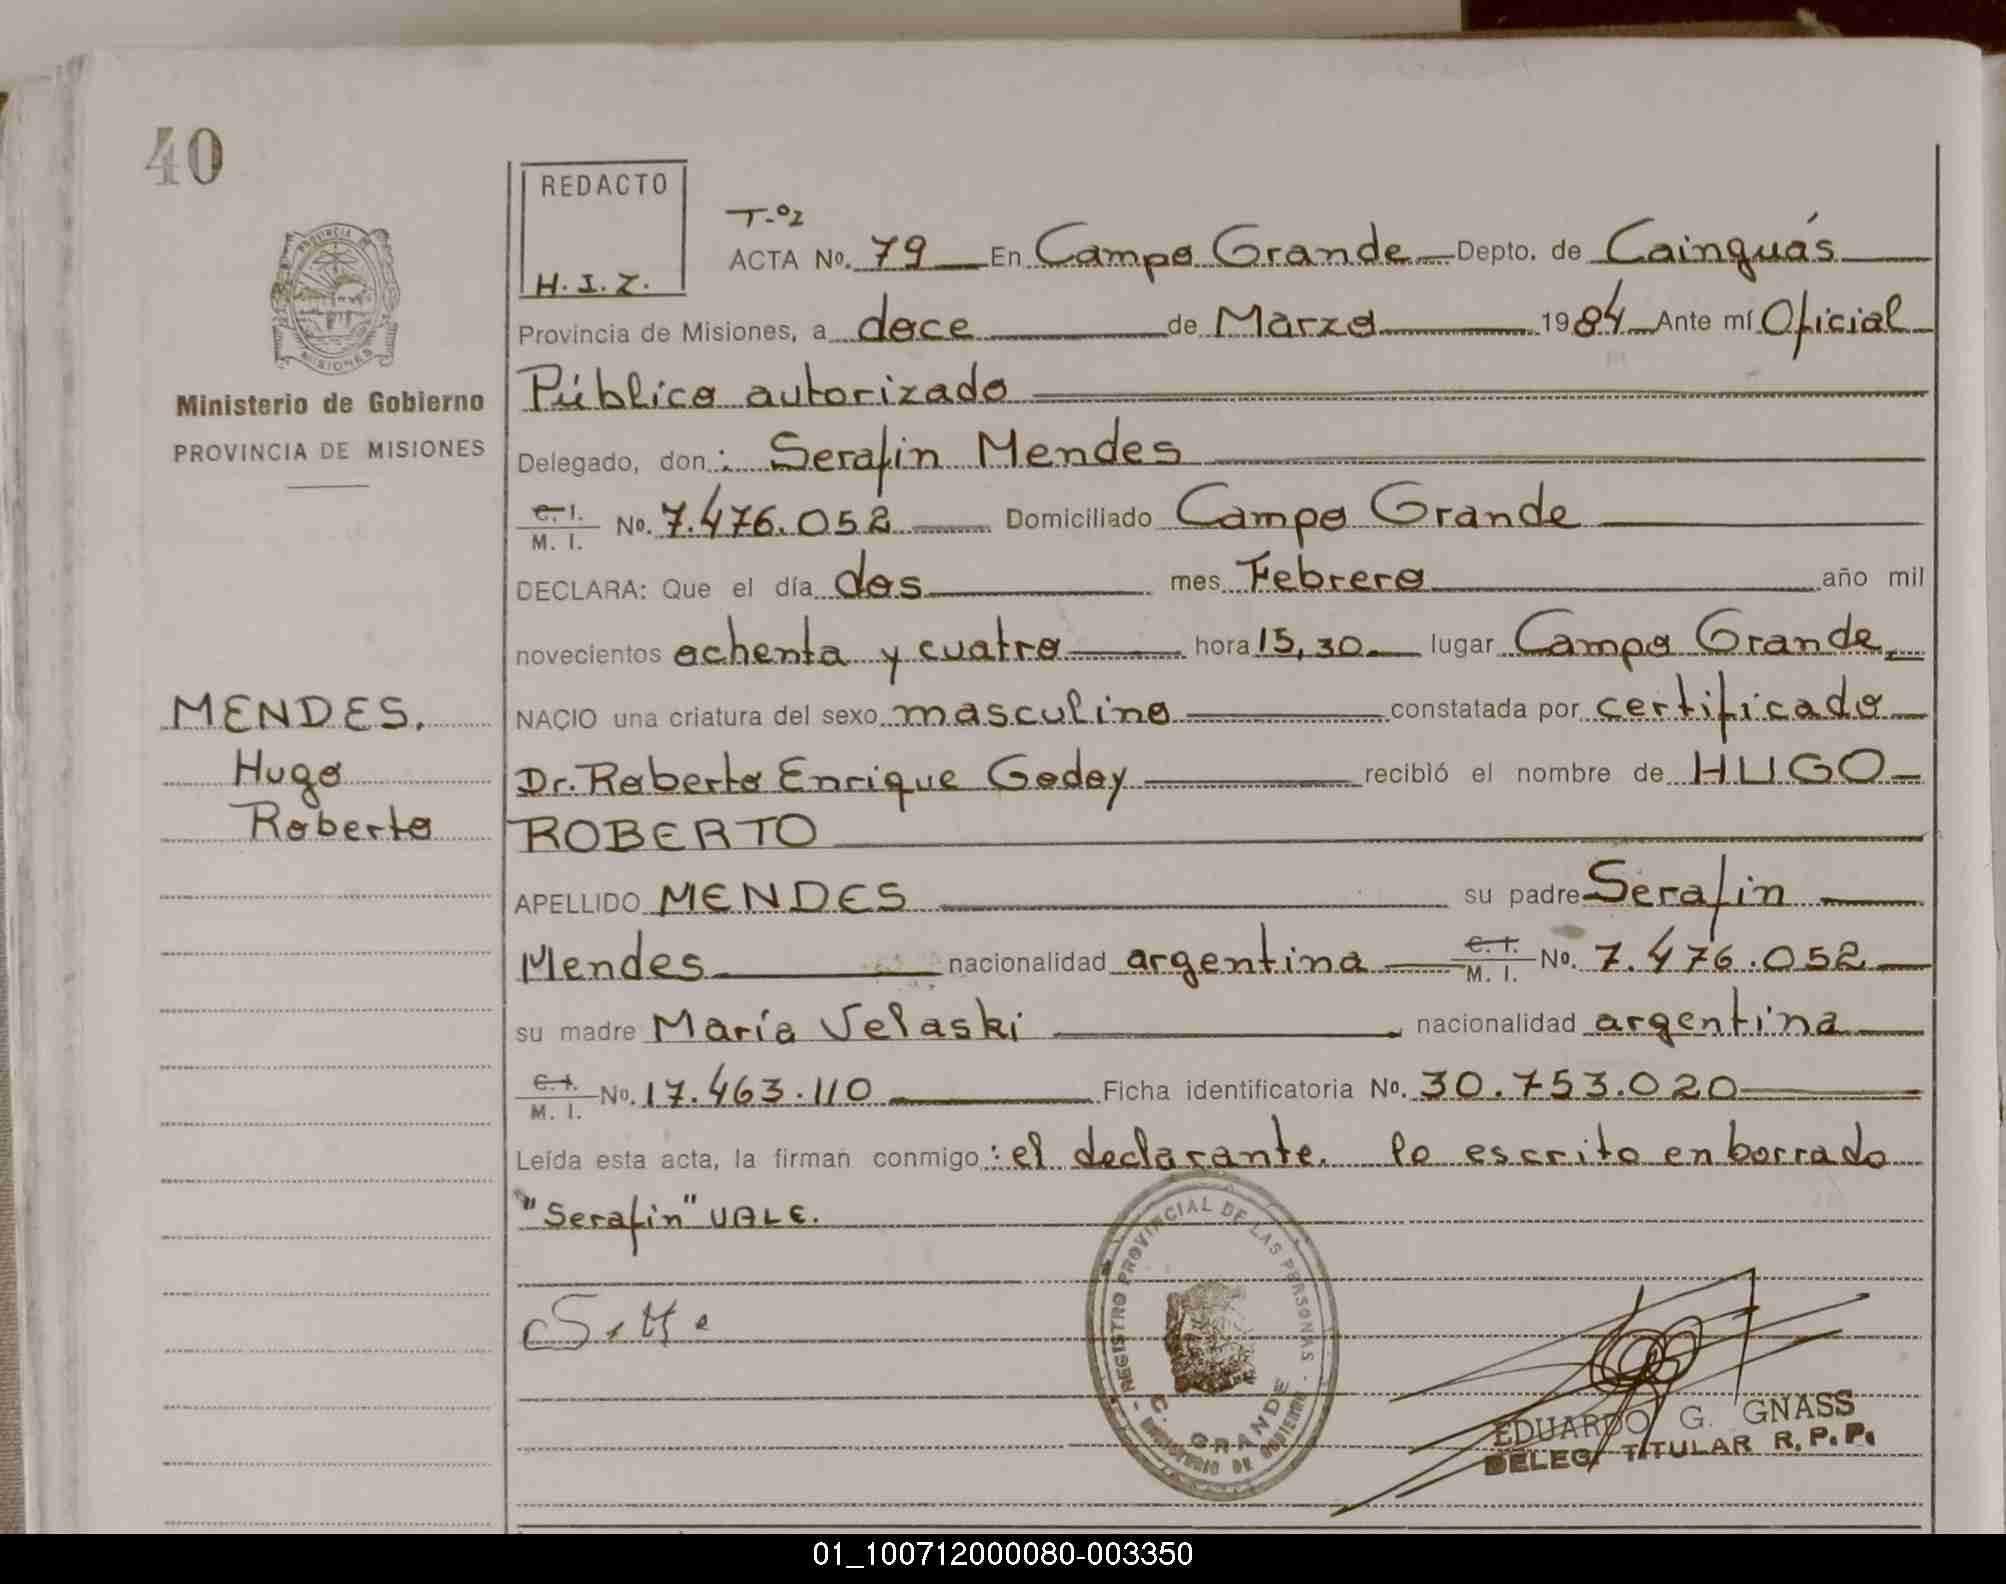 40
REDACTO
H. I. Z.
T-º2
ACTA Nº. 79 En Campo Grande Depto. de Cainguás
Provincia de Misiones, a doce de Marzo 1984 Ante mí Oficial
Público autorizado
Delegado, don: Serafin Mendes
C. I. / M. I. Nº. 7.476.052 Domiciliado Campo Grande
DECLARA: Que el día dos mes Febrero año mil
novecientos ochenta y cuatro hora 15,30 lugar Campo Grande,
NACIO una criatura del sexo masculino constatada por certificado
Dr. Roberto Enrique Godoy recibió el nombre de HUGO
ROBERTO
APELLIDO MENDES su padre Serafin
Mendes nacionalidad argentina C. I. / M. I. Nº. 7.476.052
su madre María Velaski nacionalidad argentina
C. I. / M. I. Nº. 17.463.110 Ficha identificatoria Nº. 30.753.020
Leída esta acta, la firman conmigo: el declarante. lo escrito en borrado
"Serafin" VALE.
PROVINCIA DE
MISIONES
Ministerio de Gobierno
PROVINCIA DE MISIONES
MENDES.
Hugo
Roberto
REGISTRO PROVINCIAL DE LAS PERSONAS
C. GRANDE
MINISTERIO DE GOBIERNO
EDUARDO G. GNASS
DELEG. TITULAR R. P. P.
01_100712000080-003350